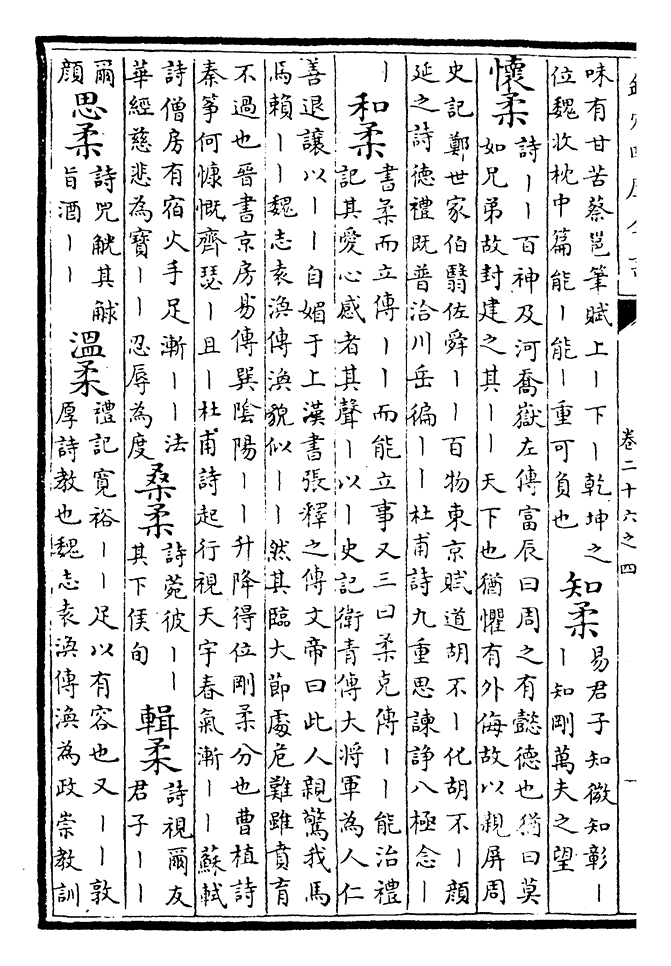 卷二十六之四
味有甘苦蔡邕筆賦上丨下丨乾坤之
位魏收枕中篇能丨能丨重可負也
知柔
易君子知微知彰丨
丨知剛萬夫之望
懷柔
詩丨丨百神及河喬嶽左傳富辰曰周之有懿德也猶曰莫
如兄弟故封建之其丨丨天下也猶懼有外侮故以親屏周
史記鄭世家伯翳佐舜丨丨百物東京賦道胡不丨化胡不丨顔
延之詩德禮既普洽川岳徧丨丨杜甫詩九重思諫諍八極念丨
丨
和柔
書柔而立傳丨丨而能立事又三曰柔克傳丨丨能治禮
記其愛心感者其聲丨以丨史記衛青傳大將軍為人仁
善退讓以丨丨自媚于上漢書張釋之傳文帝曰此人親驚我馬
馬賴丨丨魏志袁渙傳渙貌似丨丨然其臨大節處危難雖賁育
不過也晉書京房易傳巽陰陽丨丨升降得位剛柔分也曹植詩
秦筝何慷慨齊瑟丨且丨杜甫詩起行視天宇春氣漸丨丨蘇軾
詩僧房有宿火手足漸丨丨法
華經慈悲為寶丨丨忍辱為度
桑柔
詩菀彼丨丨
其下侯旬
輯柔
詩視爾友
君子丨丨
爾
顔
思柔
詩兕觥其觩
旨酒丨丨
溫柔
禮記寬裕丨丨足以有容也又丨丨敦
厚詩教也魏志袁渙傳渙為政崇教訓